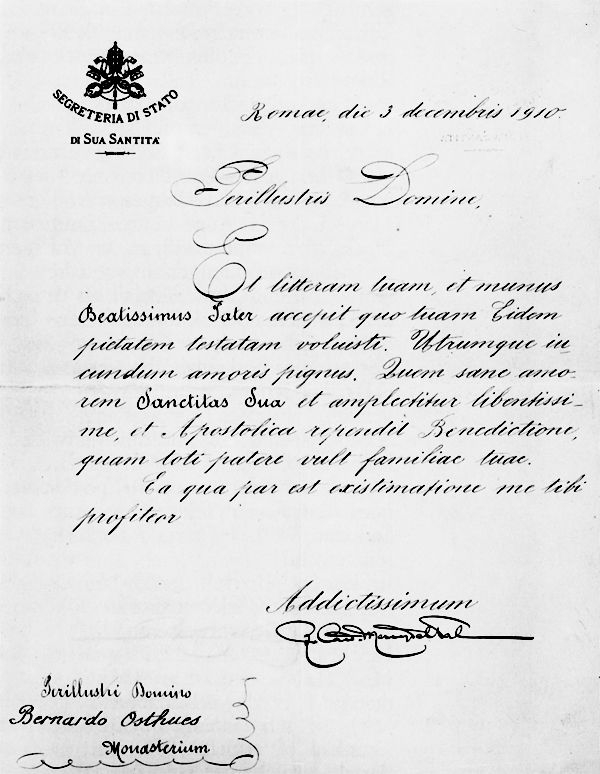 SEGRETERIA DI STATO
DI SUA SANTITÀ
Romae, die 3 decembris 1910.
Perillustris Domine,
Et litteram tuam, et munus
Beatissimus Pater accepit quo tuam Eidem
pietatem testatam voluisti. Utrumque iu-
cundum amoris pignus. Quem sane amo-
rem Sanctitas Sua et amplectitur libentissi-
me, et Apostolica rependit Benedictione,
quam toti patere vult familiae tuae.
Ea qua par est existimatione me tibi
profiteor
Addictissimum
R. Card. Merry del Val
Perillustri Domino
Bernardo Osthues
Monasterium